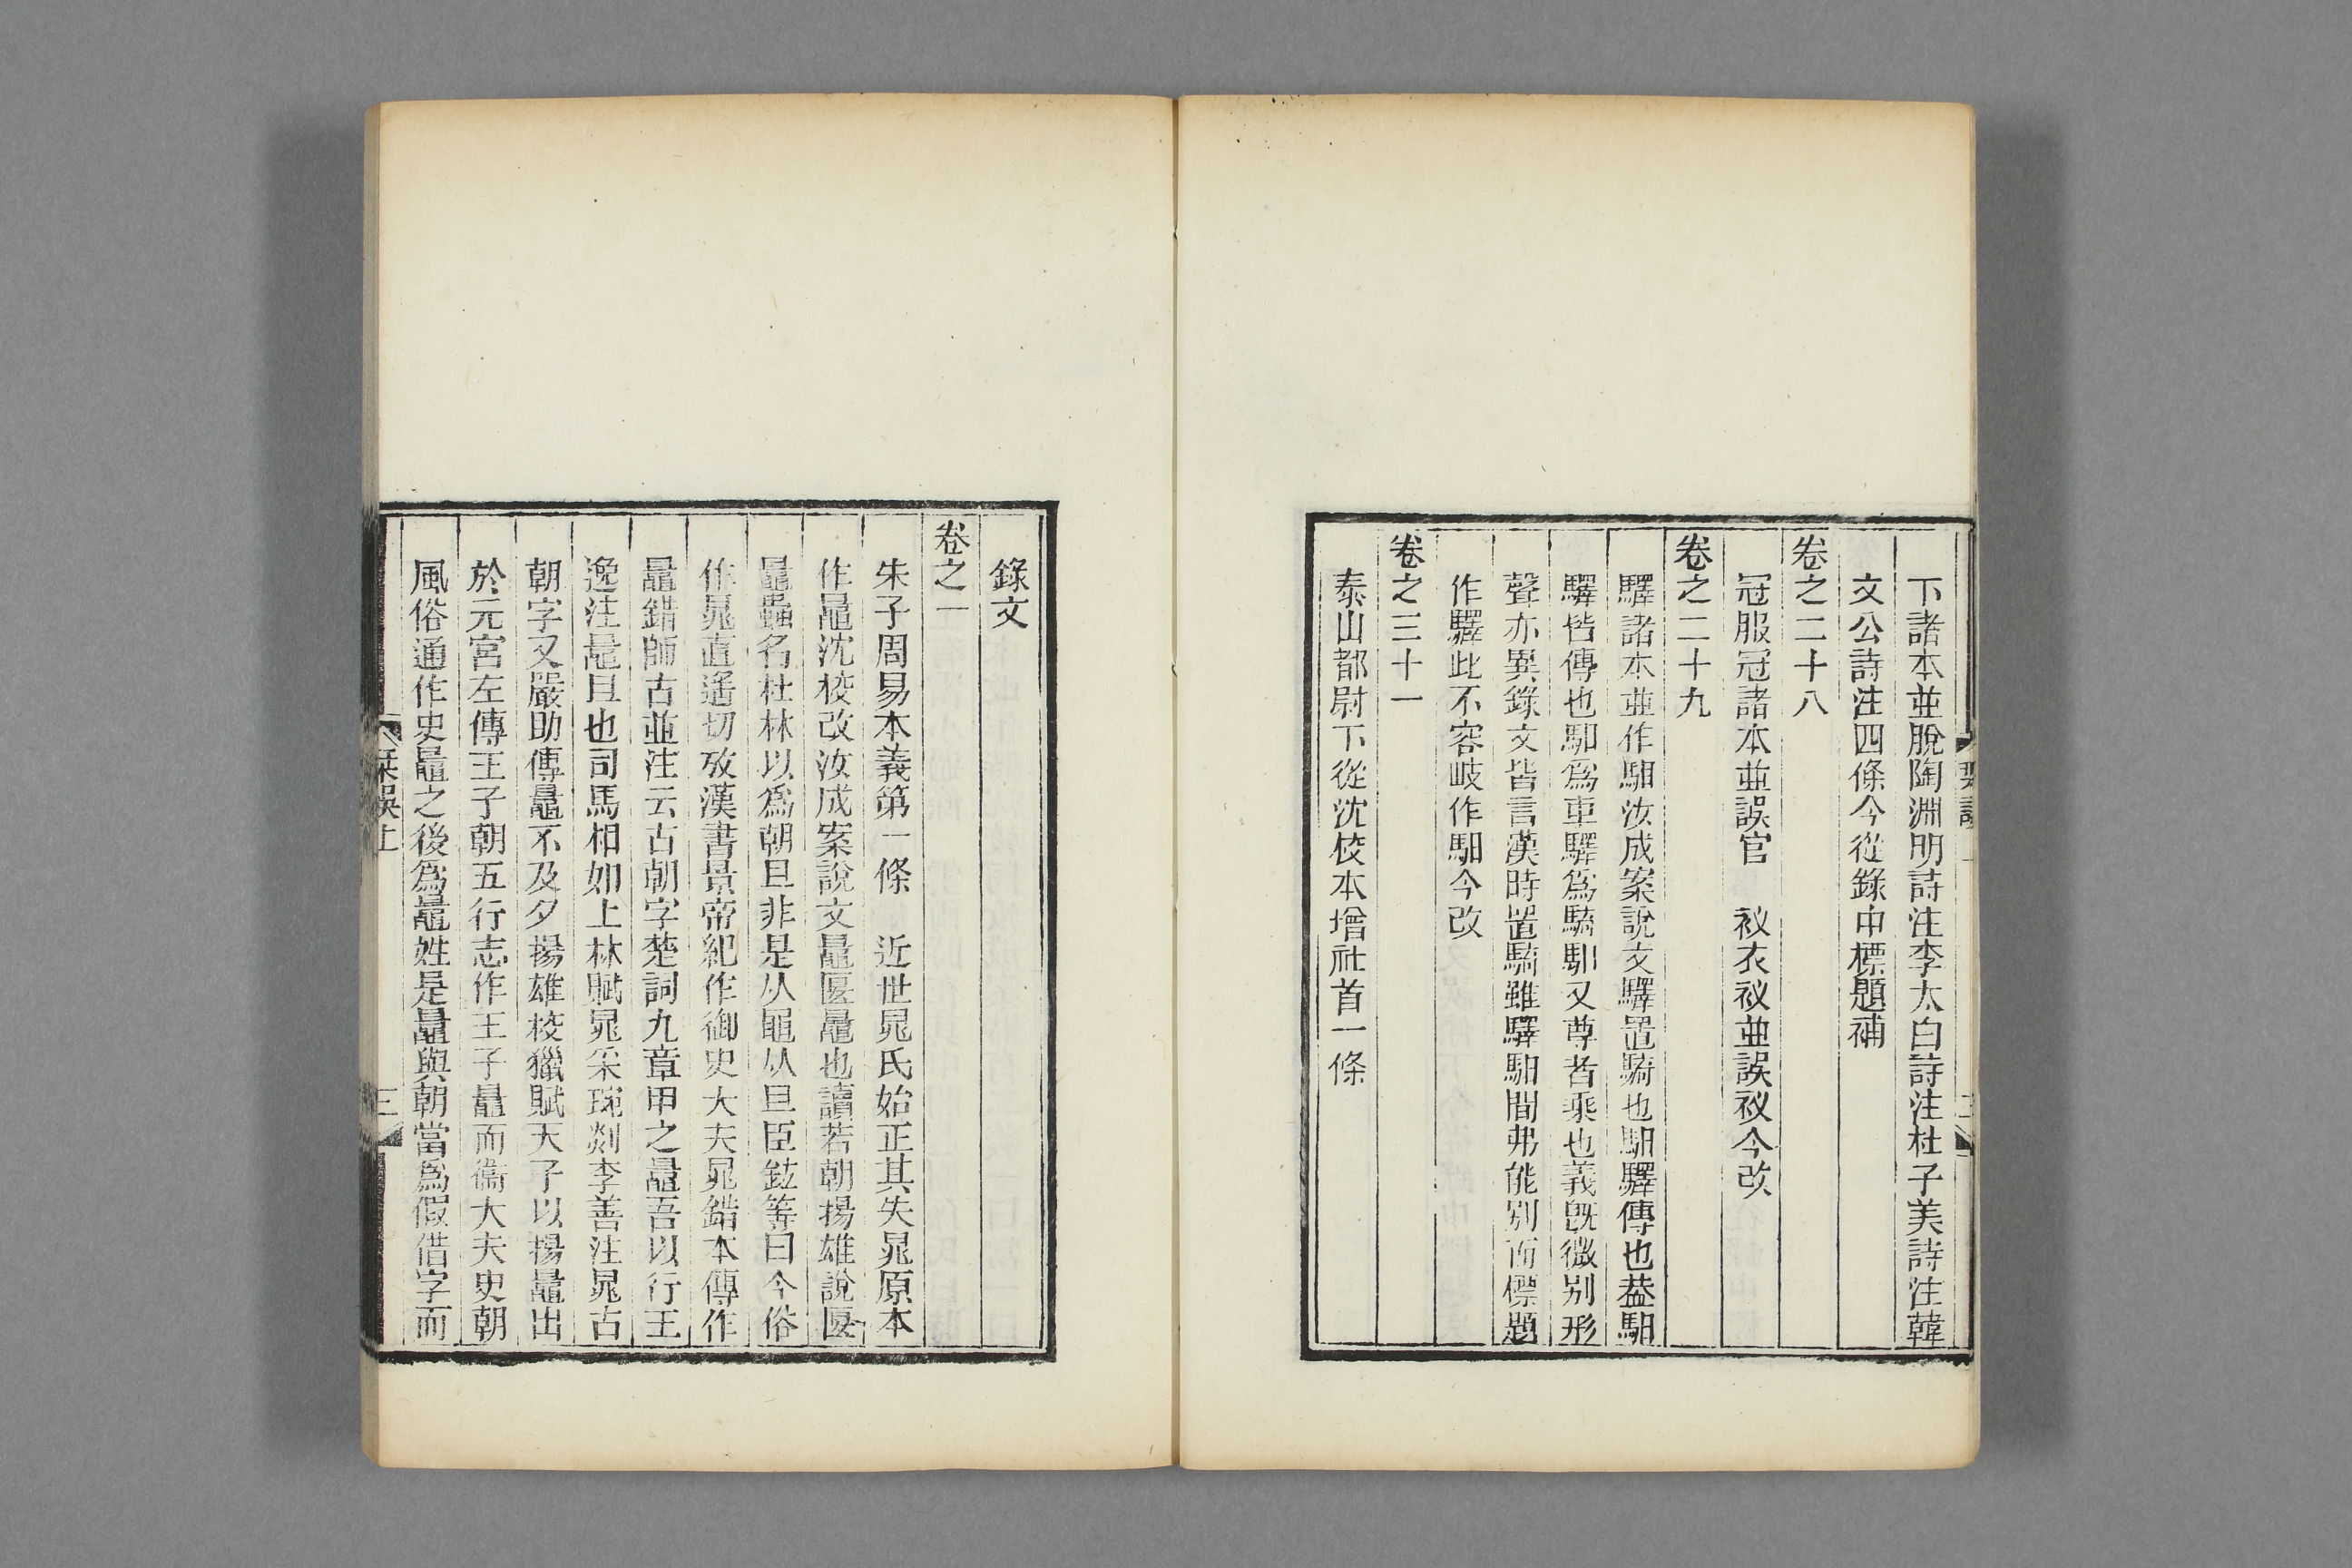 下諸本並脫陶淵明詩注李太白詩注杜子美詩注韓
文公詩注四條今從錄中標題補
卷之二十八
冠服冠諸本並誤官　衩衣衩並誤衩今改
卷之二十九
驛諸本並作馹汝成案說文驛置騎也馹驛傳也葢馹
驛皆傳也馹爲車驛爲騎馹又尊者乘也義旣微別形
聲亦異錄文皆言漢時置騎雖驛馹閒弗能別而標題
作驛此不容岐作馹今改
卷之三十一
泰山都尉下從沈校本增社首一條
錄文
卷之一
朱子周易本義第一條　近世晁氏始正其失晁原本
作鼂沈校改汝成案說文鼂匽鼂也讀若朝揚雄說匽
鼂蟲名杜林以爲朝旦非是从黽从旦臣鉉等曰今俗
作晁直遙切攷漢書景帝紀作御史大夫晁錯本傳作
鼂錯師古並注云古朝字楚詞九章甲之鼂吾以行王
逸注鼂旦也司馬相如上林賦晁采琬剡李善注晁古
朝字又嚴助傳鼂不及夕揚雄校獵賦天子以揚鼂出
於元宮左傳王子朝五行志作王子鼂而衞大夫史朝
風俗通作史鼂之後爲鼂姓是鼂與朝當爲假借字而
栞誤上
三